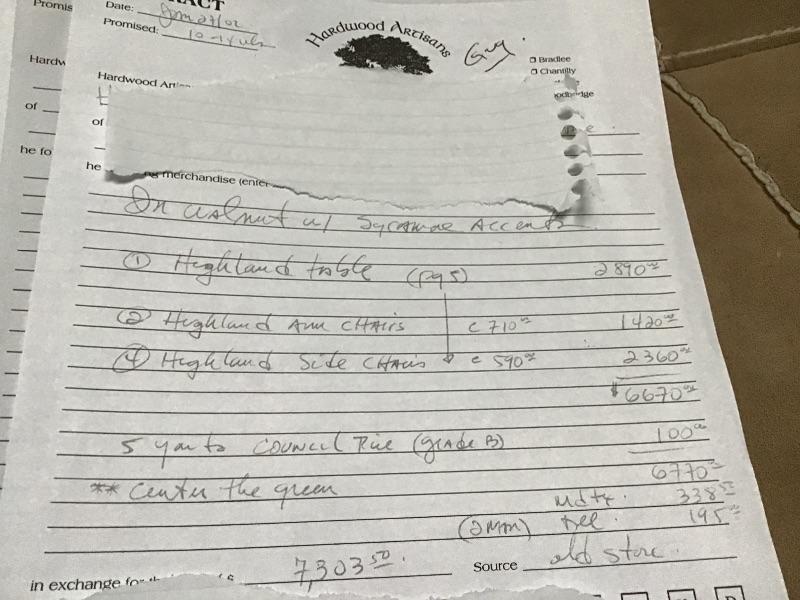 Promis
RACT
Date: Jan 27/02
Promised: 10-14 wks
Hardwood Artisans
Guy.
Bradlee
Chantilly
Hardw
Hardwood Arti
odbridge
of
of
he fo
he
ng merchandise (enter
In walnut w/ Sycamore Accents
① Highland table (pg 5) 2890.00
② Highland Arm CHAirs @ 710.00 1420.00
④ Highland Side CHAirs @ 590.00 2360.00
$6670.00
5 yards COUNCIL (grade B) 100.00
6770.00
** Center the green
Md tx. 338.50
(2 MAN) Del. 195.00
in exchange for th 7,303.50. Source old store.